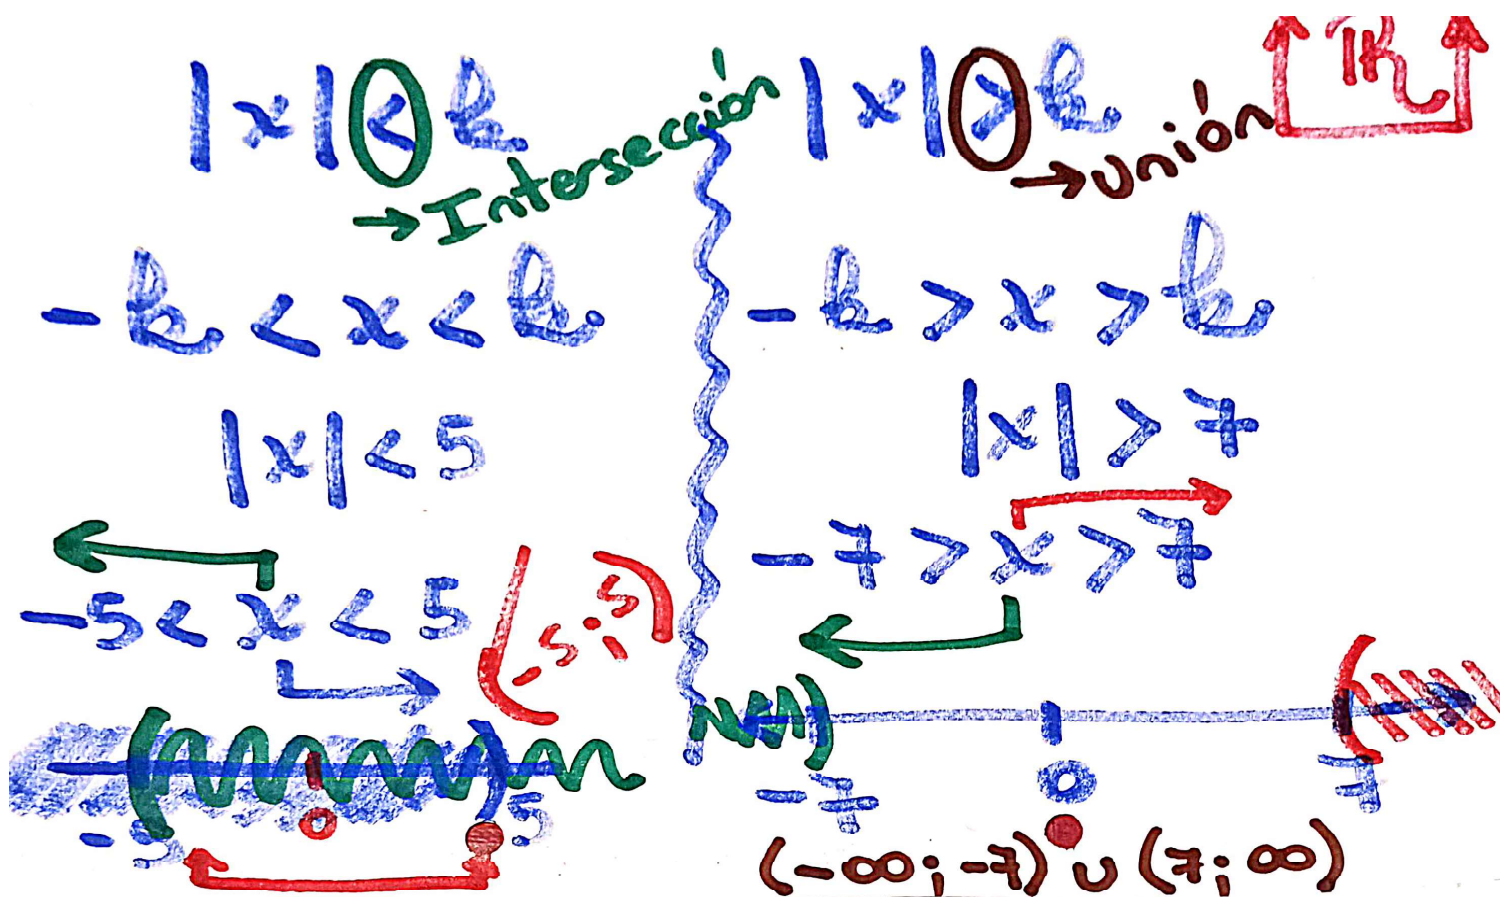 |x| < k
→ Intersección
-k < x < k
|x| < 5
-5 < x < 5
(-5;5)
-5 0 5
|x| > k
→ Unión
ℝ
-k > x > k
|x| > 7
-7 > x > 7
-7 0 7
(-∞;-7) ∪ (7;∞)